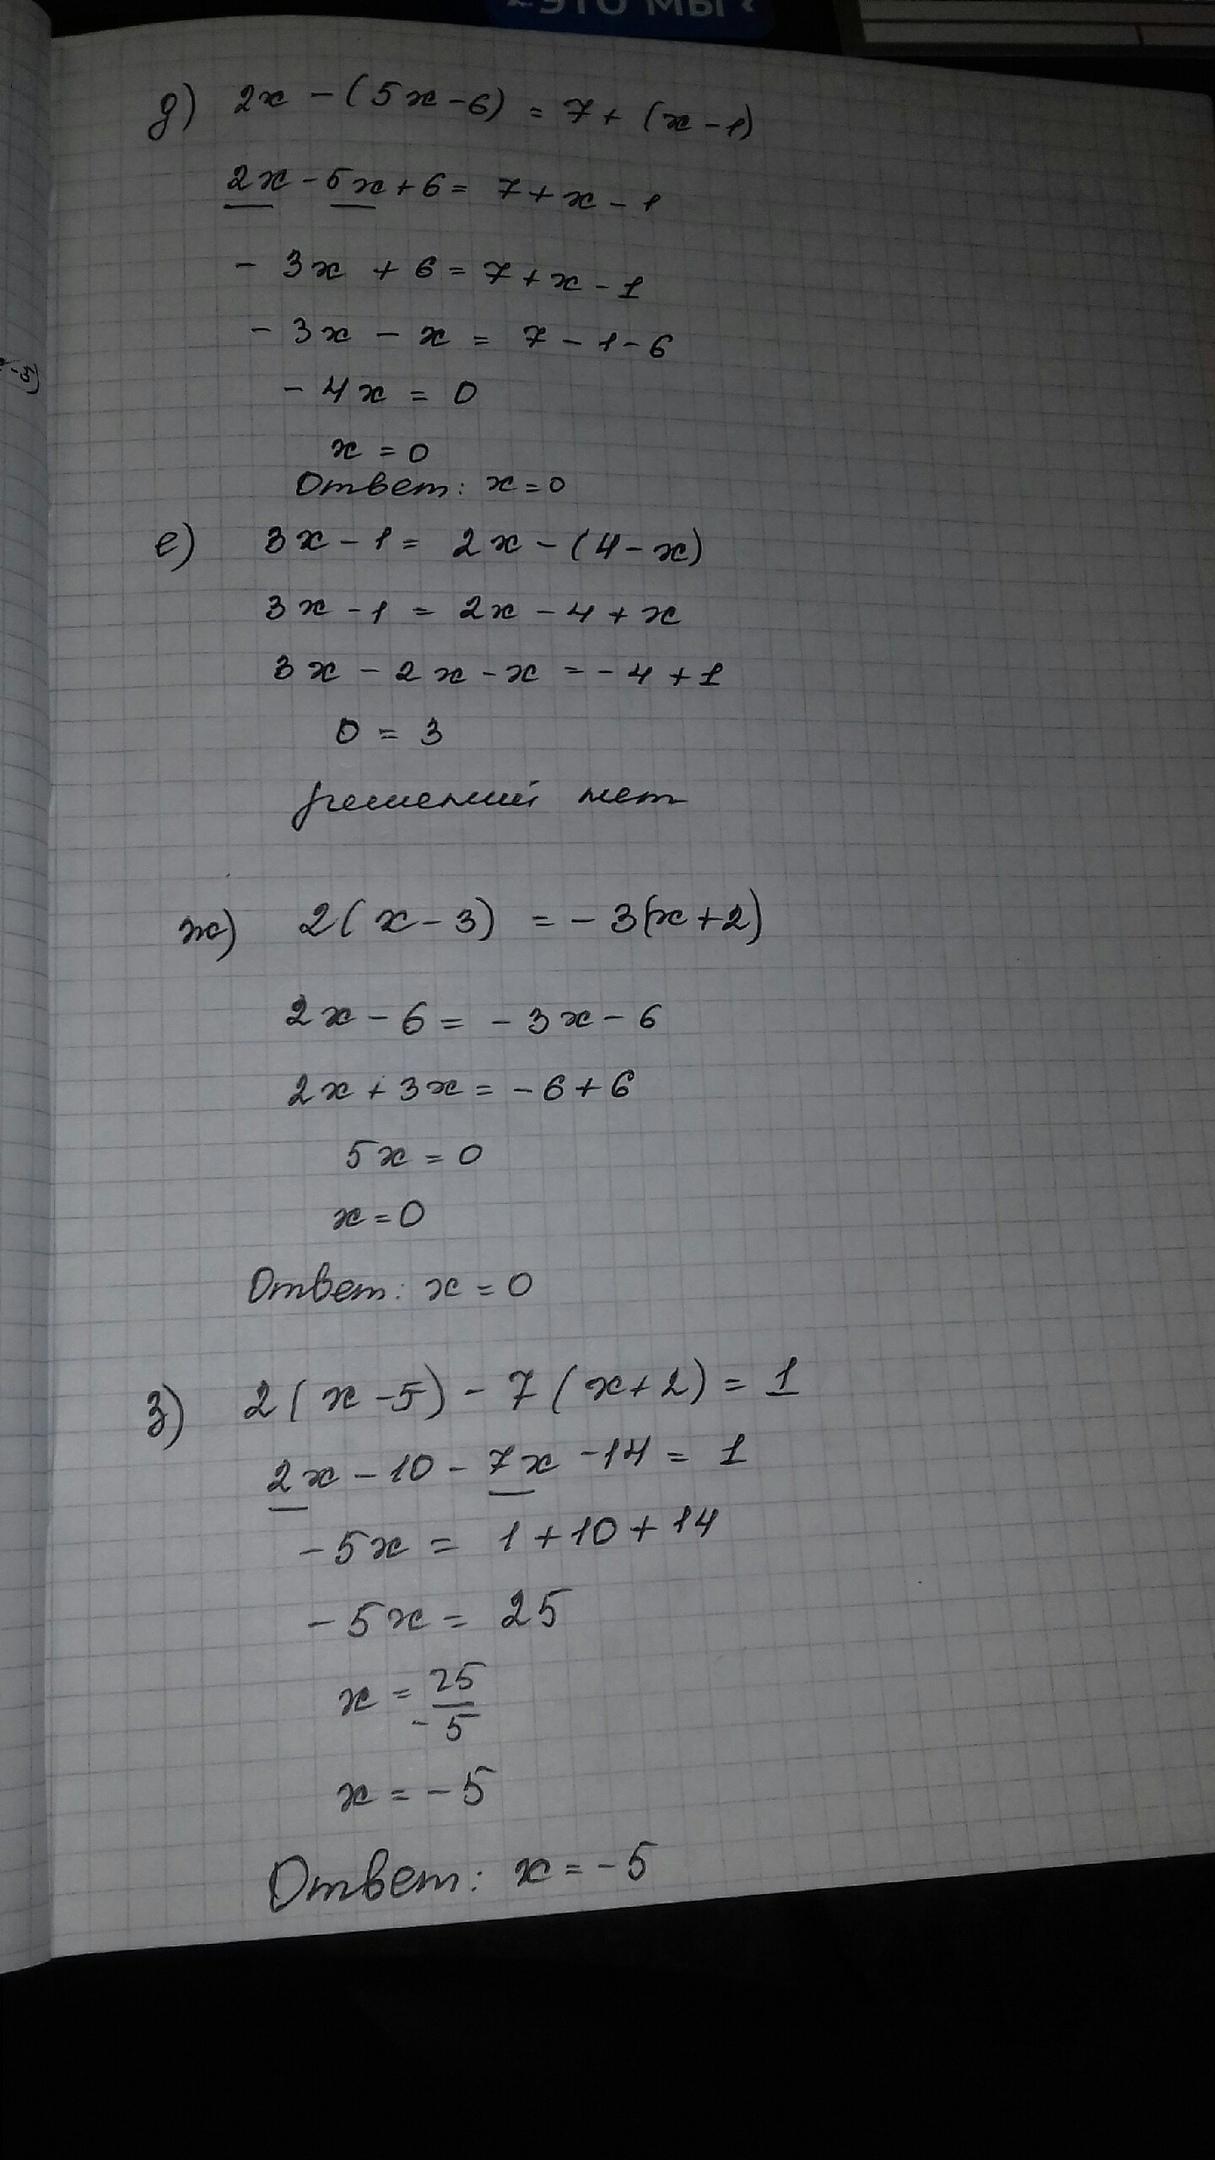 ЭТО МЫ
д) 2x - (5x - 6) = 7 + (x - 1)
2x - 5x + 6 = 7 + x - 1
- 3x + 6 = 7 + x - 1
- 3x - x = 7 - 1 - 6
-5)
- 4x = 0
x = 0
Ответ: x = 0
е) 3x - 1 = 2x - (4 - x)
3x - 1 = 2x - 4 + x
3x - 2x - x = - 4 + 1
0 = 3
решений нет
ж) 2(x - 3) = - 3(x + 2)
2x - 6 = - 3x - 6
2x + 3x = - 6 + 6
5x = 0
x = 0
Ответ: x = 0
з) 2(x - 5) - 7(x + 2) = 1
2x - 10 - 7x - 14 = 1
- 5x = 1 + 10 + 14
- 5x = 25
x = 25
- 5
x = - 5
Ответ: x = - 5